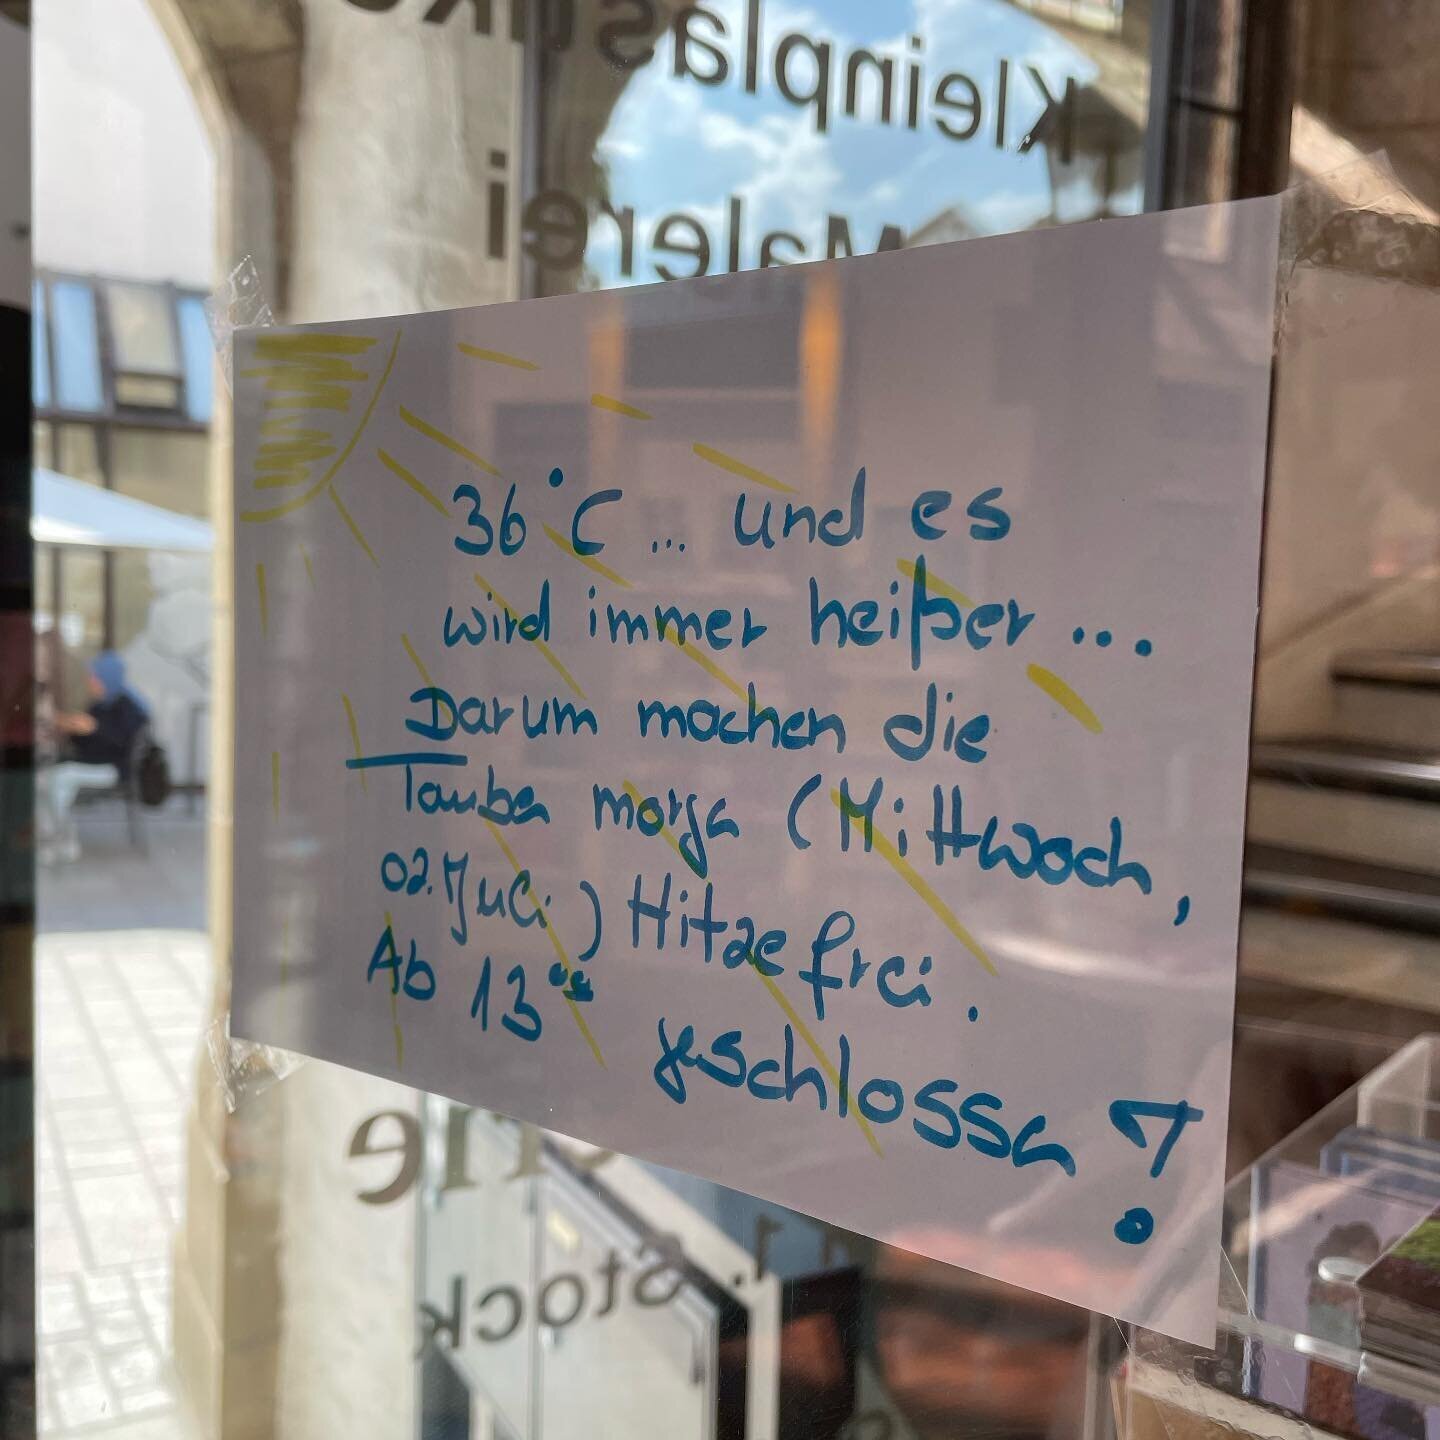 Kleinplastike
Malerei
36°C ... und es
wird immer heißer ...
Darum machen die
Tauben morgen (Mittwoch,
02. Juli) Hitzefrei.
Ab 13°° geschlossen!
erie
1. Stock